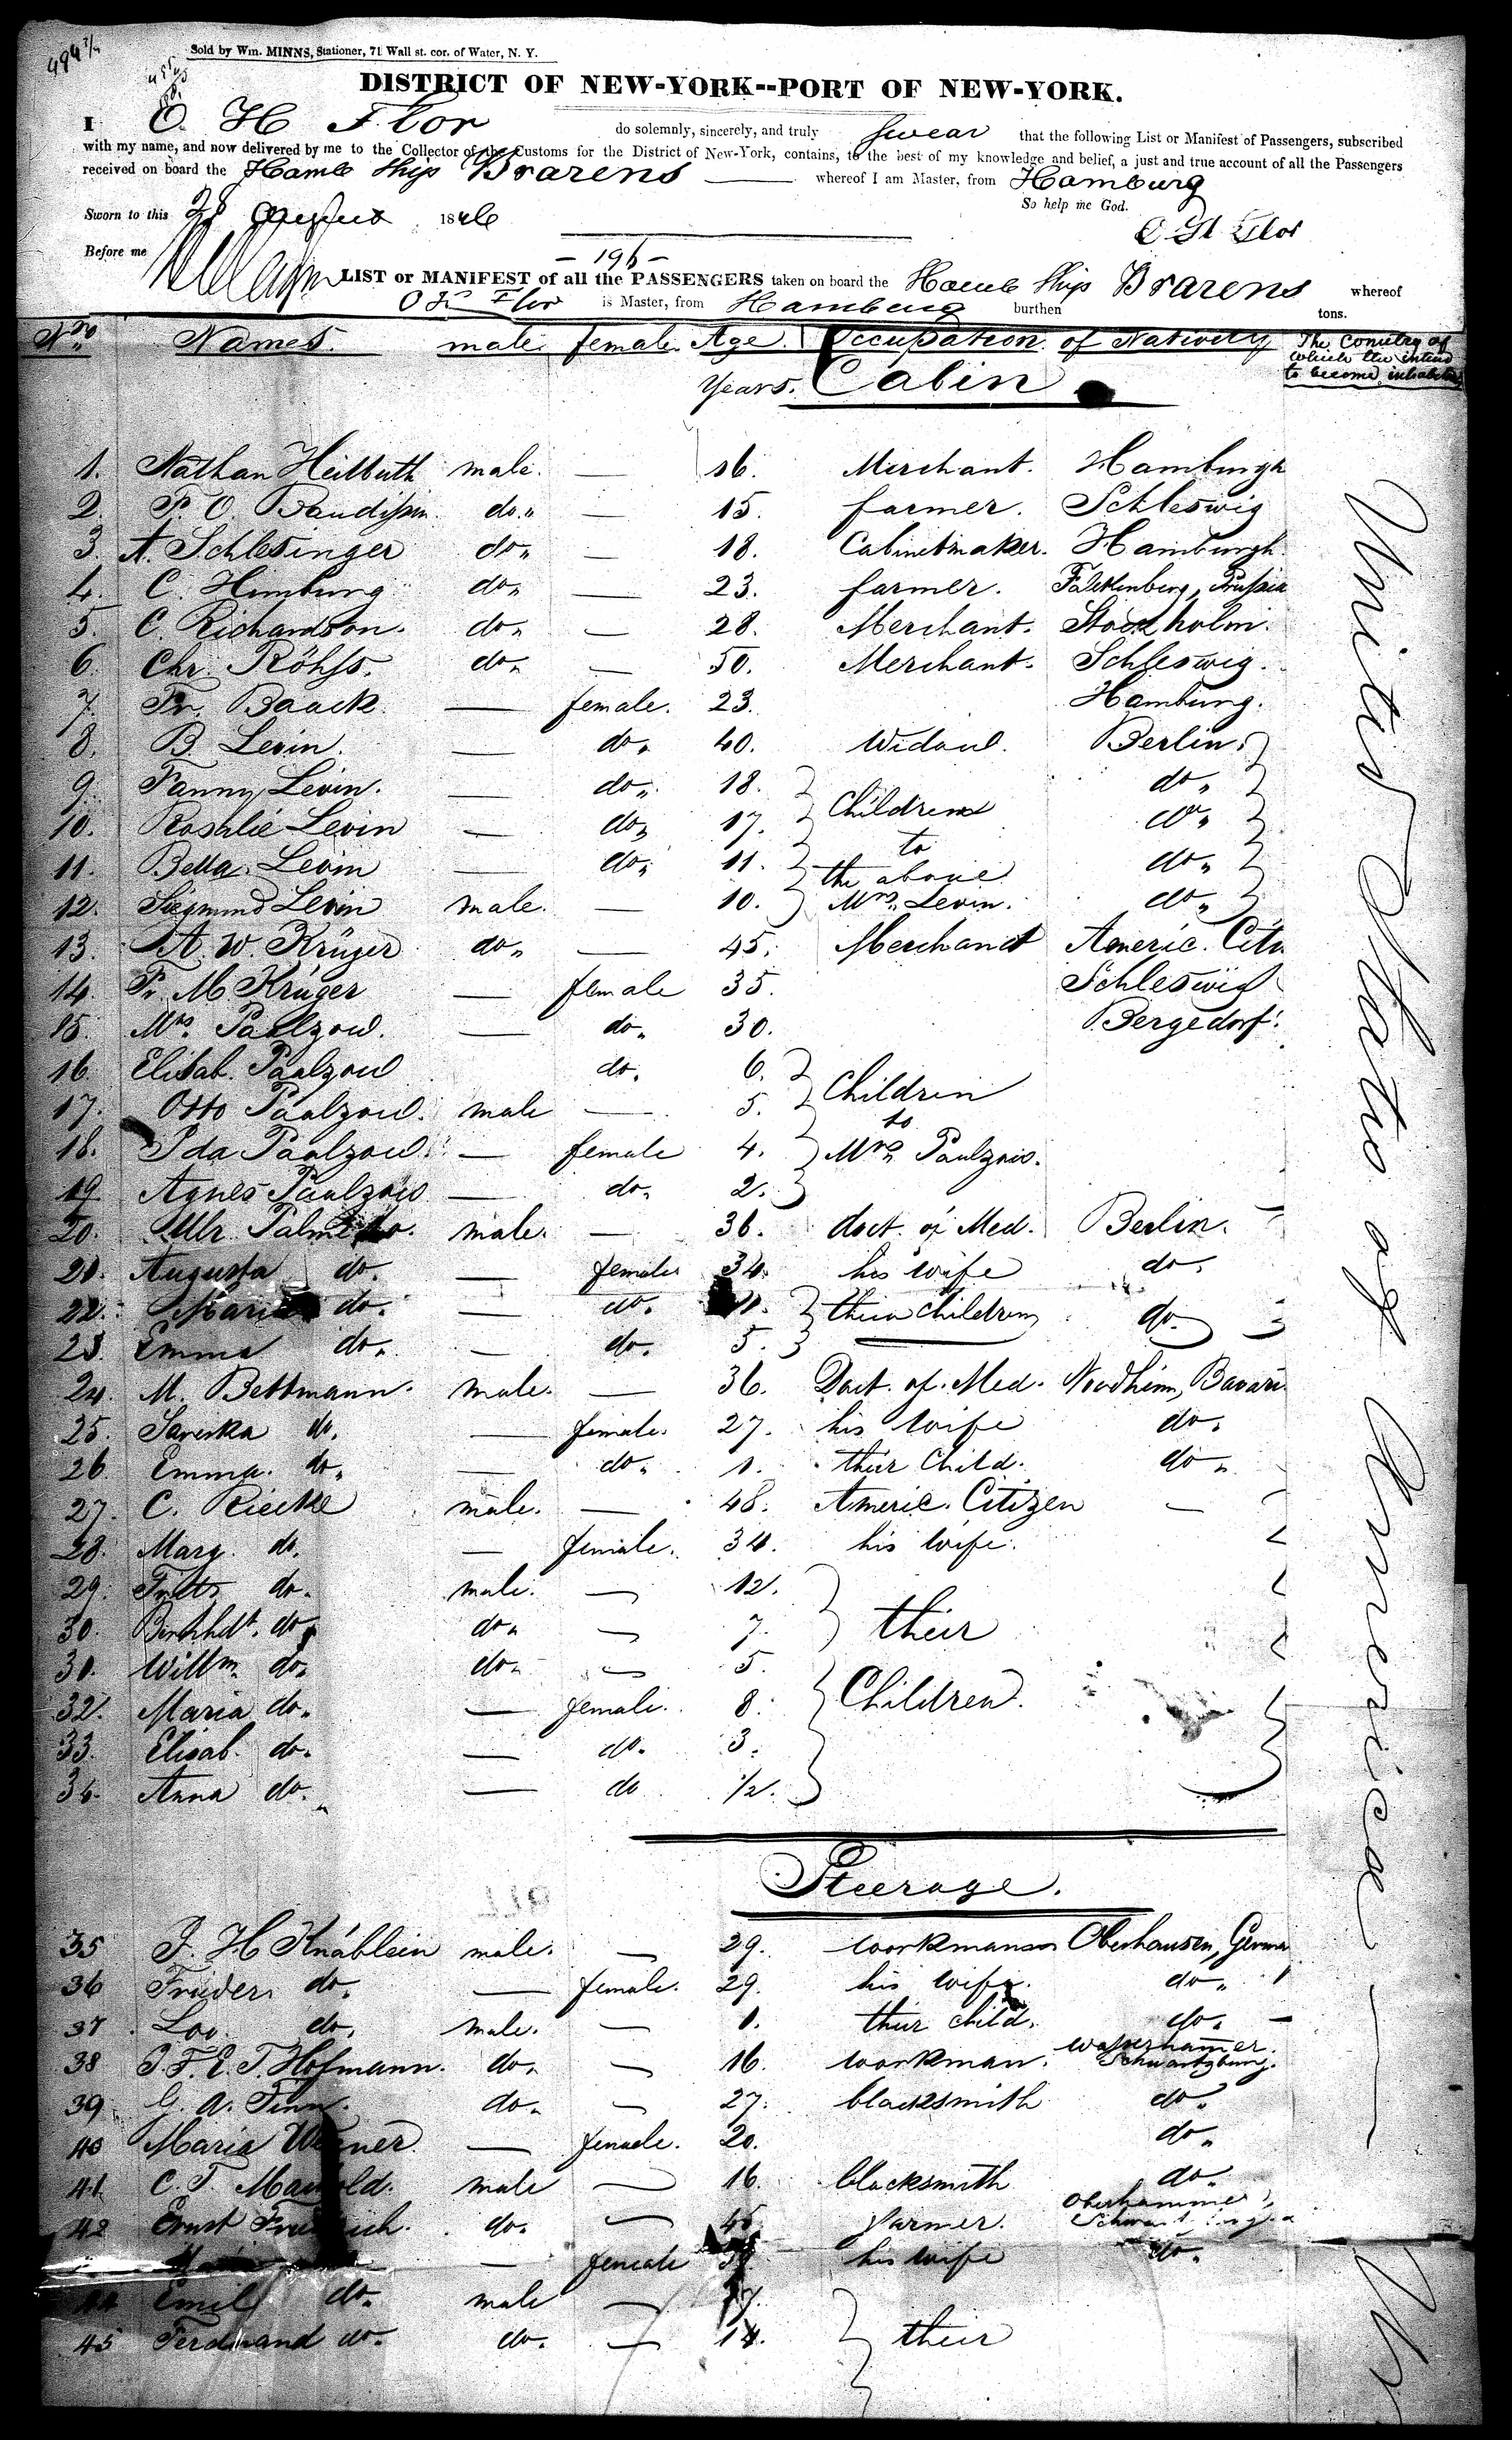 494 3/4
Sold by Wm. MINNS, Stationer, 71 Wall st. cor. of Water, N. Y.
DISTRICT OF NEW-YORK--PORT OF NEW-YORK.
I O. H Flor do solemnly, sincerely, and truly swear that the following List or Manifest of Passengers, subscribed
with my name, and now delivered by me to the Collector of the Customs for the District of New-York, contains, to the best of my knowledge and belief, a just and true account of all the Passengers
received on board the Hamb Ship Brarens whereof I am Master, from Hamburg
So help me God.
Sworn to this 28 August 1846
O H Flor
Before me
- 196 -
LIST or MANIFEST of all the PASSENGERS taken on board the Hamb Ship Brarens whereof
O H Flor is Master, from Hamburg burthen tons.
No Names. male. female. Age. Occupation. of Nativity The Country of which the intend to become inhabitants
Years. Cabin
1. Nathan Heilbuth male. — 16. Merchant. Hamburgh
2. F. O. Baudissin do. — 15. farmer. Schleswig
3. A. Schlesinger do. — 18. Cabinetmaker. Hamburgh.
4. C. Himburg do. — 23. farmer. Falkenberg, Prussia
5. C. Richardson. do. — 28. Merchant. Stockholm.
6. Chr. Röhss. do. — 50. Merchant. Schleswig.
7. Fr. Baack. — female. 23. Hamburg.
8. B. Levin. — do. 40. Widow. Berlin.
9. Fanny Levin. — do. 18. Children do.
10. Rosalie Levin — do. 17. do.
11. Bella Levin — do. 11. to the above do.
12. Siegmund Levin male. — 10. Mrs. Levin. do.
13. A. W. Krüger do. — 45. Merchand Americ. Citi
14. Fr. M. Krüger — female 35. Schleswig
15. Mrs. Paulzow. — do. 30. Bergedorf.
16. Elisab. Paulzow do. 6. Children
17. Otto Paulzow. male — 5. to
18. Ida Paulzow. — female 4. Mrs. Paulzow.
19. Agnes Paulzow — do. 2.
20. Mr. male. — 36. doct. of Med. Berlin.
21. Augusta do. — female 34. his wife do.
22. Maria do. — do. their children do.
23. Emma do. — do. 5.
24. M. Bettmann. male. — 36. Doct. of Med. Bavari
25. do. — female. 27. his wife do.
26. Emma. do. — do. 1. their Child. do.
27. C. Riecke male. — 48. Americ. Citizen —
28. Marg. do. — female. 34. his wife.
29. do. male. — 12. their
30. Bernhdt. do. do. — 7.
31. Willm. do. do. — 5. Children.
32. Maria do. — female. 8.
33. Elisab. do. — do. 3.
34. Anna do. — do 1/2.
Steerage.
35 J. H Knäblein male. — 29. workmanson Oberhausen, Germa
36 Frieder. do. — female. 29. his wife. do.
37 do. male. — 1. their child. do.
38 J. F. E. T. Hofmann. do. — 16. workman. Schwartzburg.
39 G. A. Finn. do. — 27. blacksmith do.
40 Maria — female. 20. do.
41 C. T. male — 16. blacksmith do.
42 Ernst Friedrich. do. — farmer. Oberhammer
— female his wife do.
44 Emil do. male —
45 Ferdinand do. do. — 14. their
United States of America